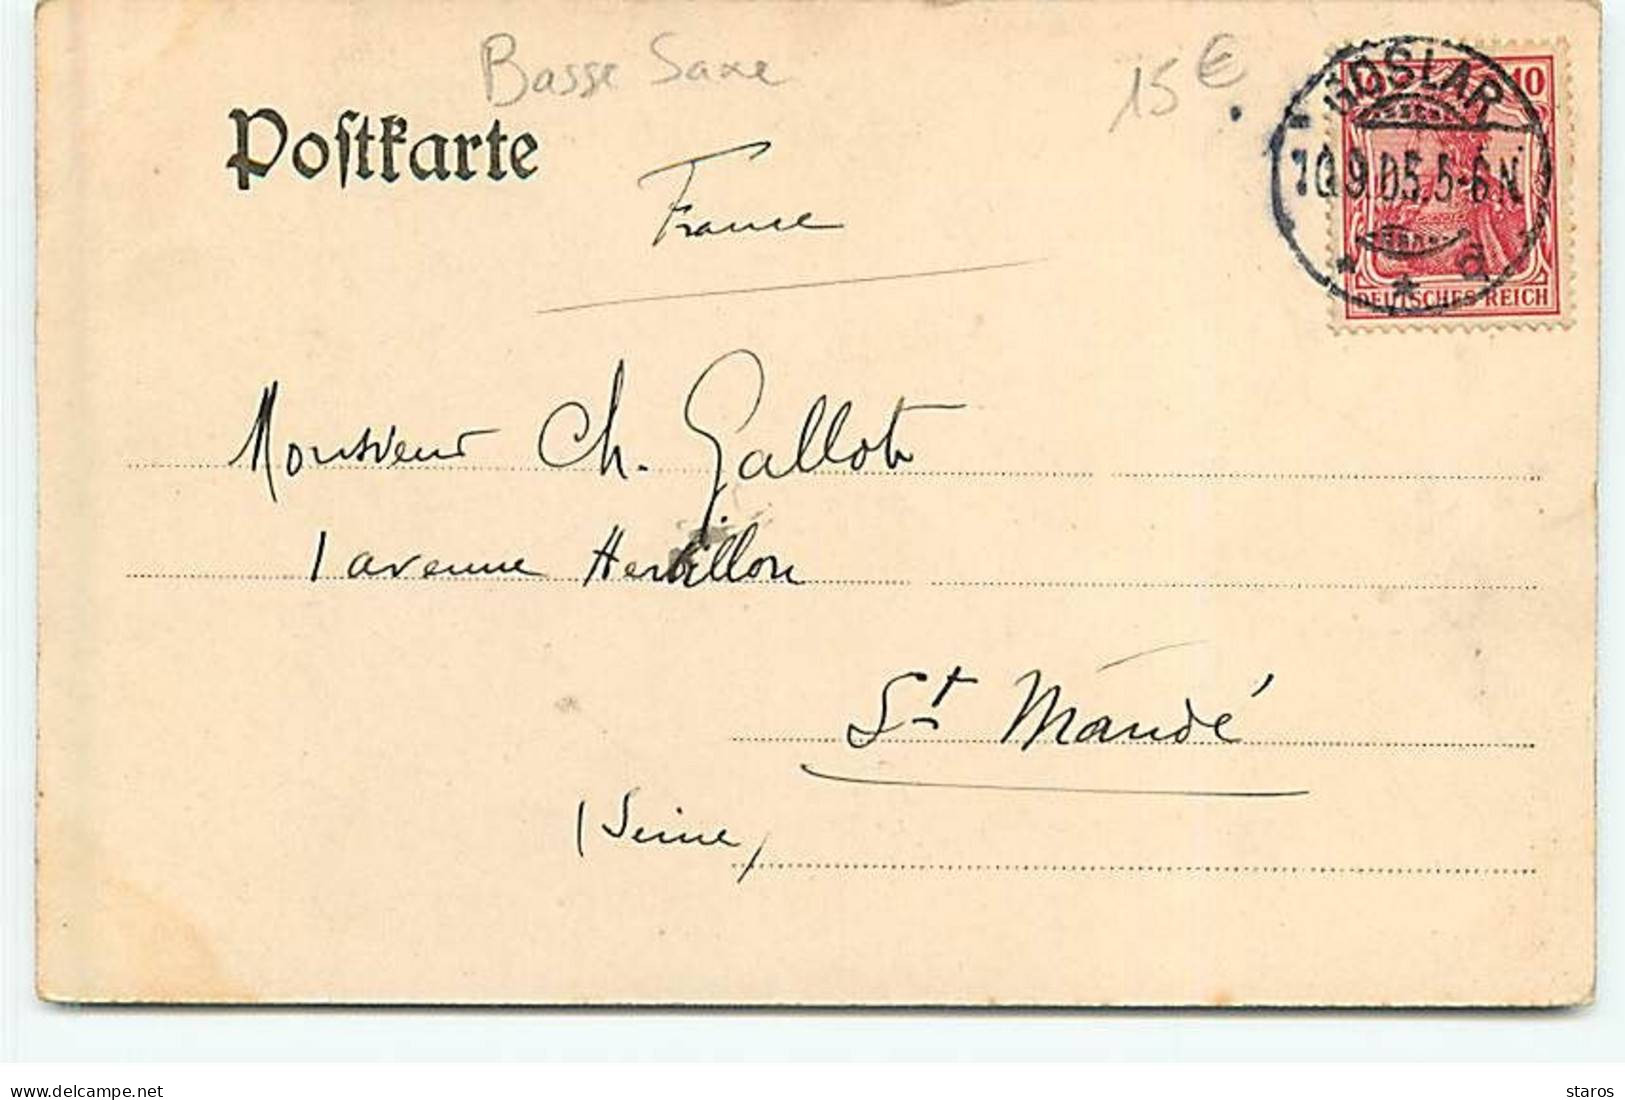 Basse Saxe
15 €
Postkarte
France
10
GOSLAR
10.9.05.5-6N
* * a
DEUTSCHES REICH
Monsieur Ch. Gallot
1 avenue Herbillon
St Mandé
(Seine)
www.delcampe.net
staros